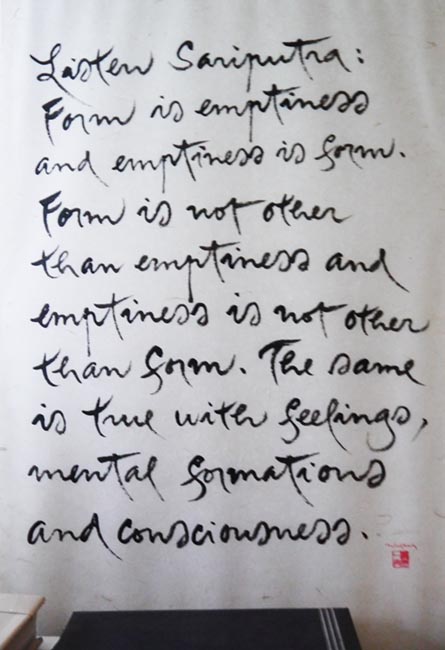 Listen Sariputra:
Form is emptiness
and emptiness is form.
Form is not other
than emptiness and
emptiness is not other
than form. The same
is true with feelings,
mental formations
and consciousness.